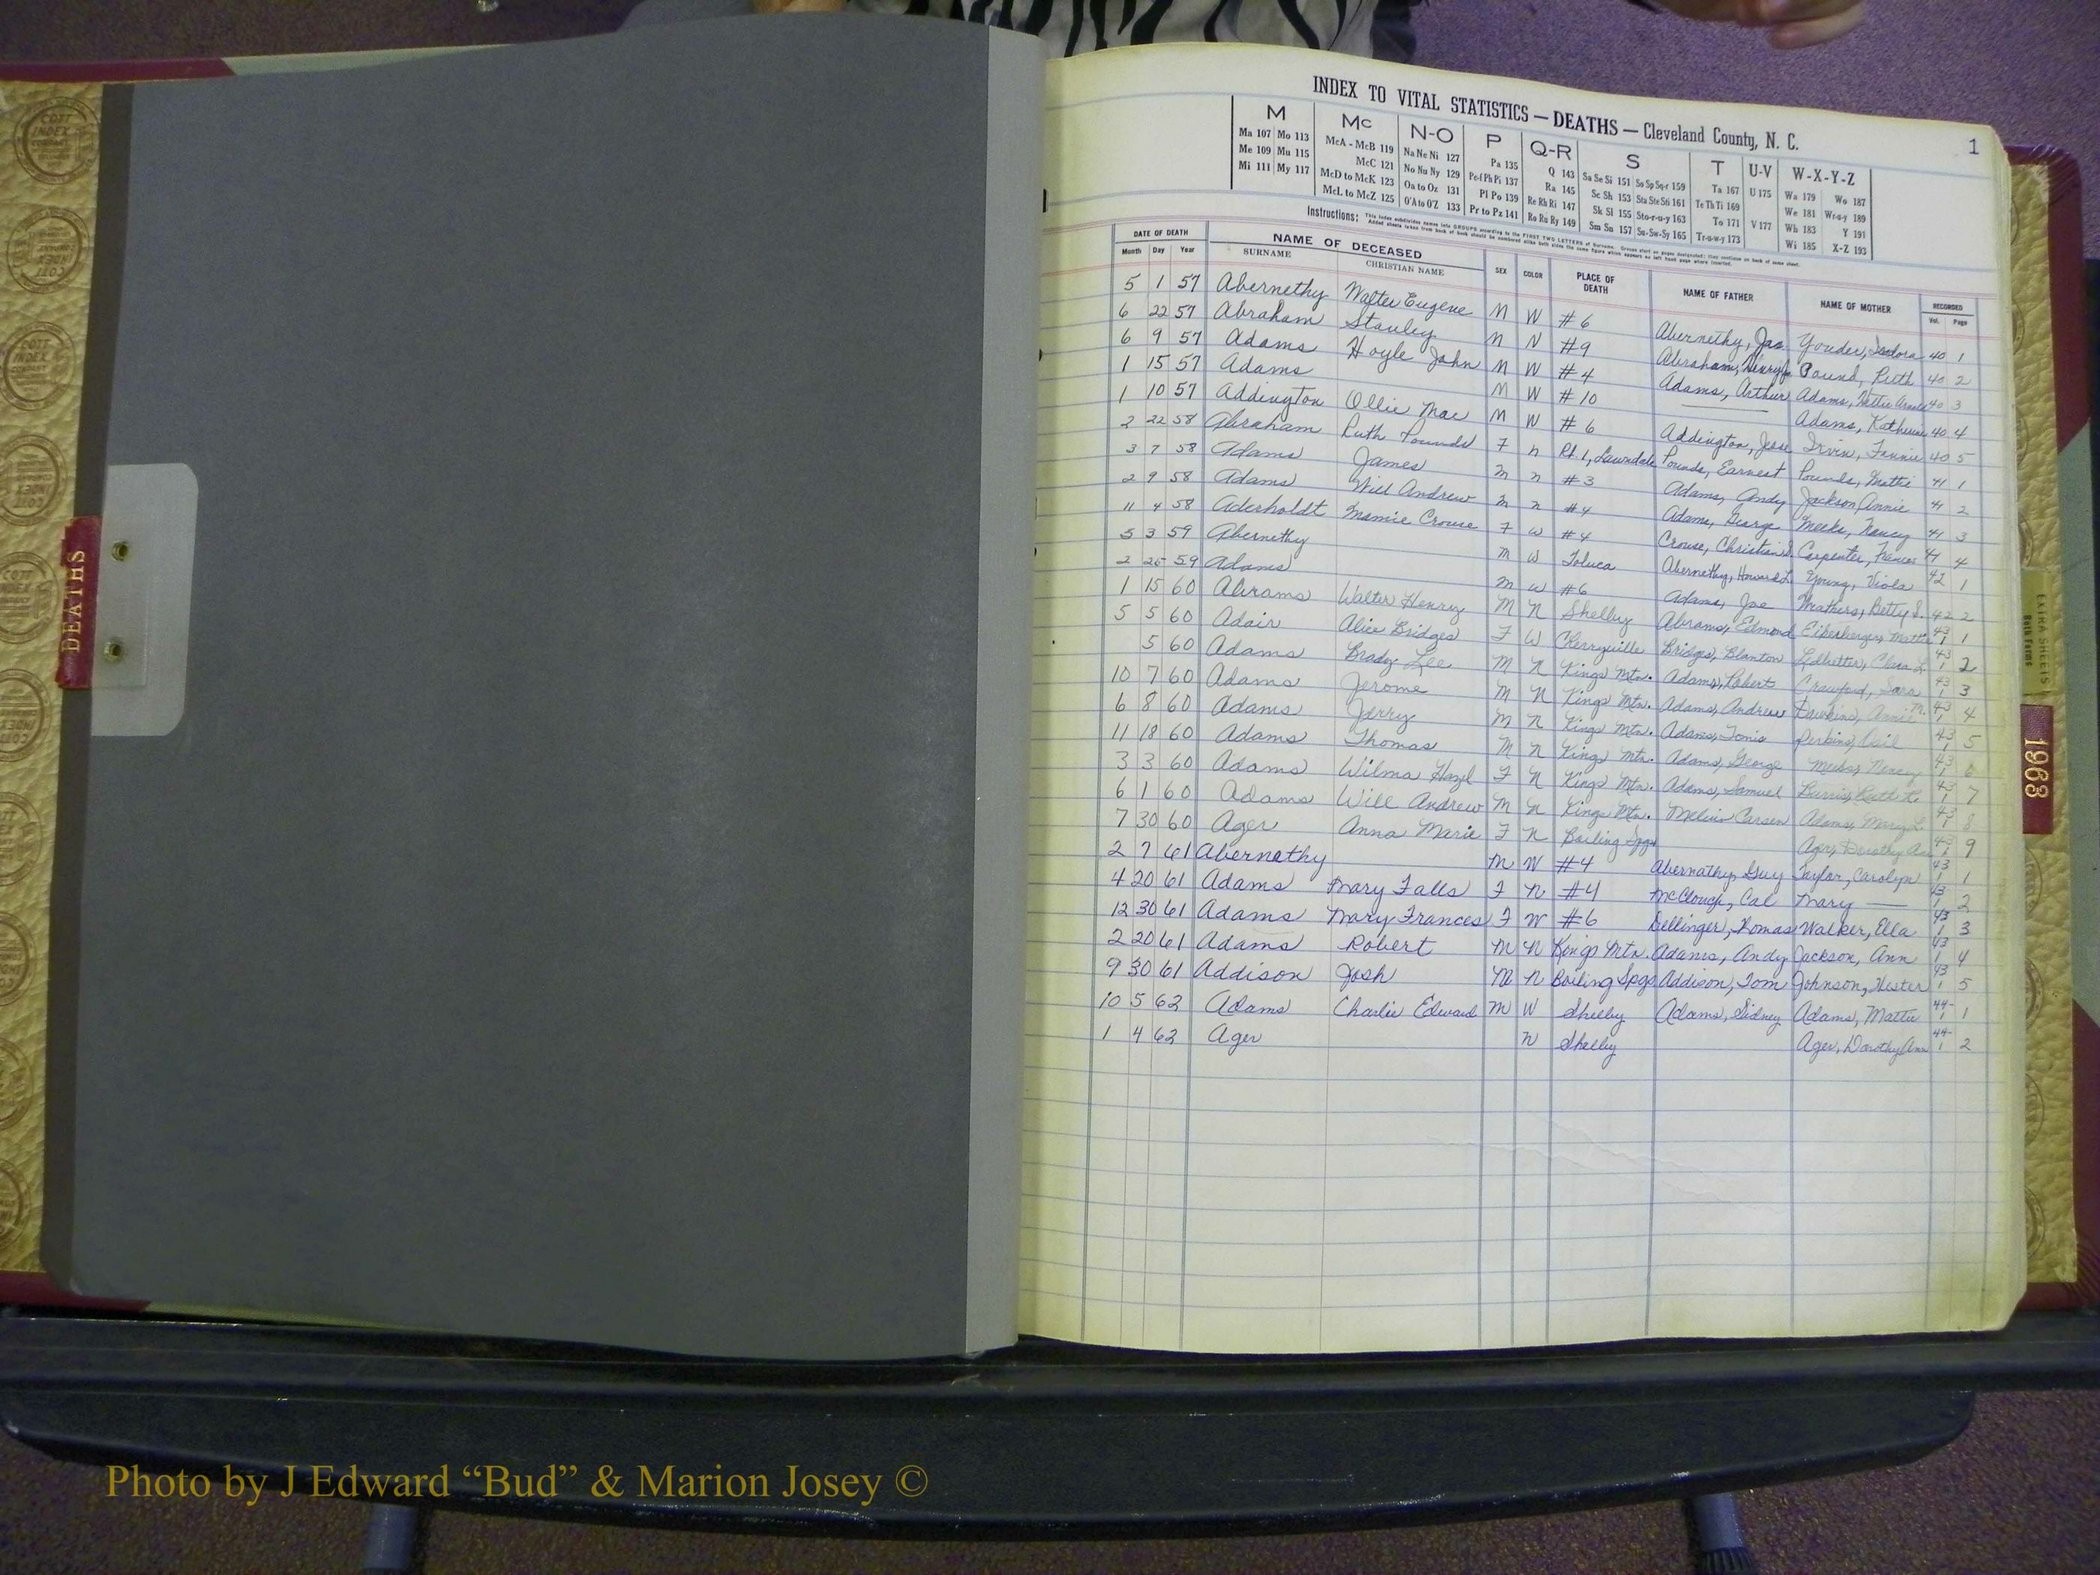 INDEX TO VITAL STATISTICS — DEATHS — Cleveland County, N. C.
1
M Mc N-O P Q-R S T U-V W-X-Y-Z
Ma 107 Mo 113 McA - McB 119 Na Ne Ni 127 Pa 135 Q 143 Sa Se Si 151 So Sp Sq-r 159 Ta 167 U 175 Wa 179 Wo 187
Me 109 Mu 115 McC 121 No Nu Ny 129 Pe-f Ph Pi 137 Ra 145 Sc Sh 153 Sta Ste Sti 161 Te Th Ti 169 We 181 Wr-u-y 189
Mi 111 My 117 McD to McK 123 Oa to Oz 131 Pl Po 139 Re Rh Ri 147 Sk Sl 155 Sto-r-u-y 163 To 171 V 177 Wh 183 Y 191
McL to McZ 125 O'A to O'Z 133 Pr to Pz 141 Ro Ru Ry 149 Sm Sn 157 Su-Sw-Sy 165 Tr-u-w-y 173 Wi 185 X-Z 193
Instructions:
DATE OF DEATH NAME OF DECEASED SEX COLOR PLACE OF DEATH NAME OF FATHER NAME OF MOTHER RECORDED
Month Day Year SURNAME CHRISTIAN NAME Vol. Page
5 1 57 Abernethy Walter Eugene M W #6 Abernethy, Jas. Yonder, Isadora 40 1
6 22 57 Abraham Stanley M N #9 Abraham, Henry Jr Pound, Ruth 40 2
6 9 57 Adams Hoyle John M W #4 Adams, Arthur Adams, Hattie 40 3
1 15 57 Adams M W #10 Adams, Katherine 40 4
1 10 57 Addington Ollie Mae M W #6 Addington, Jesse Irvin, Fannie 40 5
2 22 58 Abraham Ruth Pounds F N Rt 1, Lawndale Pounds, Earnest Pounds, Mattie 41 1
3 7 58 Adams James M N #3 Adams, Andy Jackson, Annie 41 2
2 9 58 Adams Will Andrew M N #4 Adams, George Meeks, Nancy 41 3
11 4 58 Aderholdt Mamie Crouse F W #4 Crouse, Christian S. Carpenter, Frances 41 4
5 3 59 Abernethy M W Toluca Abernethy, Howard L. Young, Viola 42 1
2 25 59 Adams M W #6 Adams, Joe Weathers, Betty S. 42 2
1 15 60 Abrams Walter Henry M N Shelby Abrams, Edmond Eikerberger, Mattie 43 1 1
5 5 60 Adair Alice Bridges F W Cherryville Bridges, Blanton Ledbetter, Clara L. 43 1 2
5 60 Adams Brady Lee M N Kings Mtn. Adams, Robert Crawford, Sara 43 1 3
10 7 60 Adams Jerome M N Kings Mtn. Adams, Andrew Dawkins, Annie M. 43 1 4
6 8 60 Adams Jerry M N Kings Mtn. Adams, Tonie Perkins, 43 1 5
11 18 60 Adams Thomas M N Kings Mtn. Adams, George Nancy 43 1 6
3 3 60 Adams Wilma Hazel F N Kings Mtn. Adams, Samuel Burris, Ruth 43 1 7
6 1 60 Adams Will Andrew M N Kings Mtn. Melvin Carson Adams, Mary L. 43 1 8
7 30 60 Ager Anna Marie F N Boiling Spgs Ager, Dorothy Ann 43 1 9
2 7 61 Abernathy M W #4 Abernathy, Guy Taylor, Carolyn 43 1 1
4 20 61 Adams Mary Falls F N #4 McClouch, Cal Mary — 43 1 2
12 30 61 Adams Mary Frances F W #6 Dellinger, Thomas Walker, Ella 43 1 3
2 20 61 Adams Robert M N Kings Mtn. Adams, Andy Jackson, Ann 43 1 4
9 30 61 Addison Josh M N Boiling Spgs Addison, Tom Johnson, Hester 43 1 5
10 5 62 Adams Charlie Edward M W Shelby Adams, Sidney Adams, Mattie 44 1 1
1 4 62 Ager N Shelby Ager, Dorothy Ann 44 1 2
DEATHS
EXTRA SHEETS
Both Forms
1963
COTT INDEX COMPANY
Photo by J Edward “Bud” & Marion Josey ©